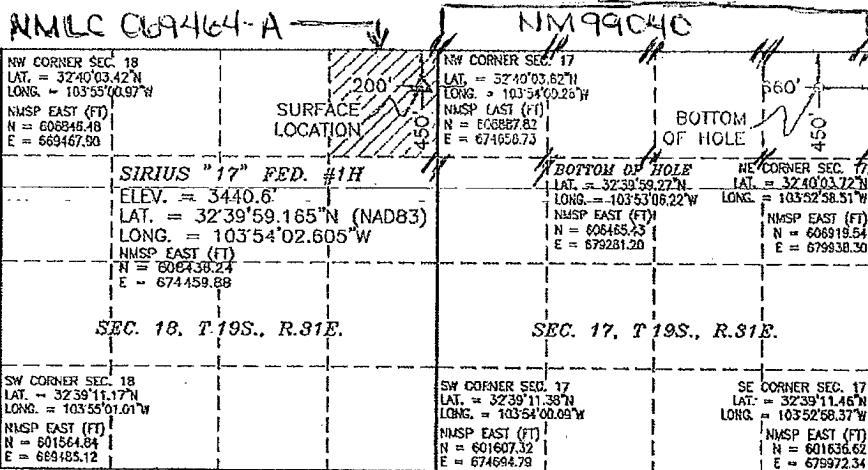 NMLC 069464-A
NM99040
NW CORNER SEC. 18
LAT. = 32°40'03.42"N
LONG. = 103°55'00.97"W
NMSP EAST (FT)
N = 606846.48
E = 669467.90
200'
450'
SURFACE
LOCATION
NW CORNER SEC. 17
LAT. = 32°40'03.62"N
LONG. = 103°54'00.26"W
NMSP EAST (FT)
N = 606887.82
E = 674656.73
660'
450'
BOTTOM
OF HOLE
SIRIUS "17" FED. #1H
ELEV. = 3440.6'
LAT. = 32°39'59.165"N (NAD83)
LONG. = 103°54'02.605"W
NMSP EAST (FT)
N = 606438.24
E = 674459.88
BOTTOM OF HOLE
LAT. = 32°39'59.27"N
LONG. = 103°53'06.22"W
NMSP EAST (FT)
N = 606465.43
E = 679281.20
NE CORNER SEC. 17
LAT. = 32°40'03.72"N
LONG. = 103°52'58.51"W
NMSP EAST (FT)
N = 606919.54
E = 679938.30
SEC. 18, T.19S., R.31E.
SEC. 17, T.19S., R.31E.
SW CORNER SEC. 18
LAT. = 32°39'11.17"N
LONG. = 103°55'01.01"W
NMSP EAST (FT)
N = 601564.84
E = 669485.12
SW CORNER SEC. 17
LAT. = 32°39'11.38"N
LONG. = 103°54'00.09"W
NMSP EAST (FT)
N = 601607.32
E = 674694.79
SE CORNER SEC. 17
LAT. = 32°39'11.46"N
LONG. = 103°52'58.37"W
NMSP EAST (FT)
N = 601636.62
E = 679972.34